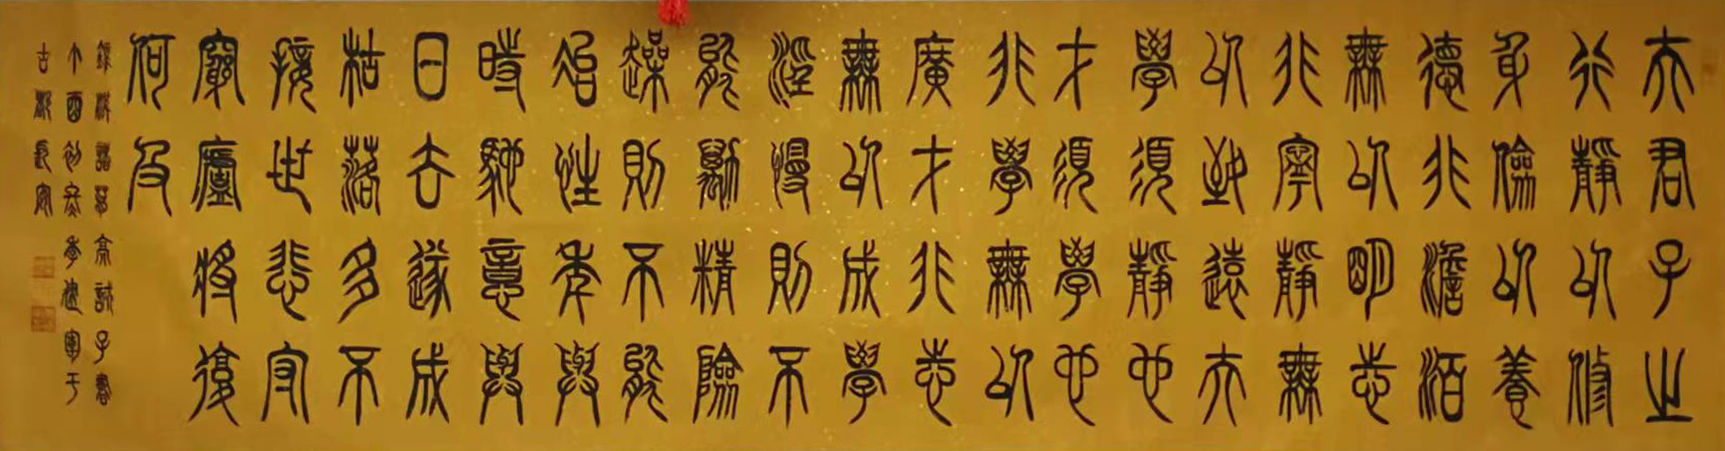 夫君子之
行靜以修
身儉以養
德非澹泊
無以明志
非寧靜無
以致遠夫
學須靜也
才須學也
非學無以
廣才非志
無以成學
淫慢則不
能勵精險
躁則不能
冶性年與
時馳意與
日去遂成
枯落多不
接世悲守
窮廬將復
何及
錄諸葛亮誡子書
丁酉初冬李建于
古都長安